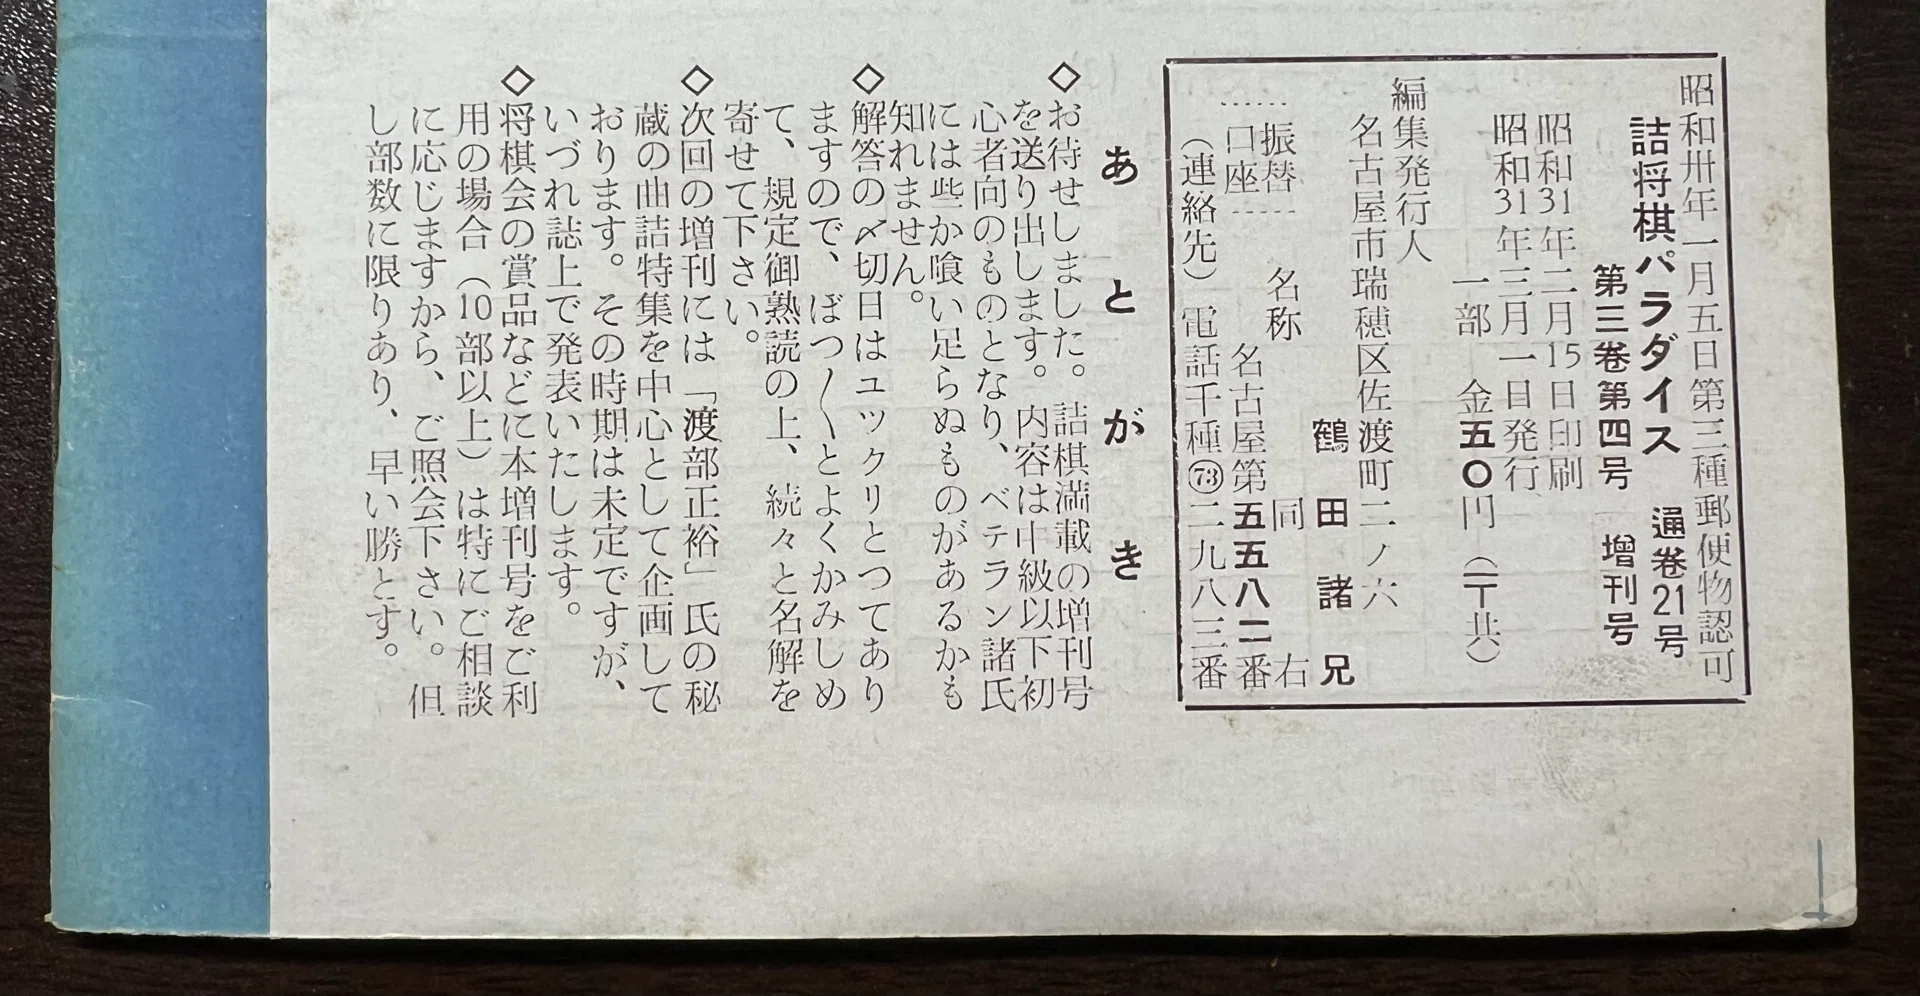 昭和卅年一月五日第三種郵便物認可
詰将棋パラダイス 通巻21号
第三卷第四号 増刊号
昭和31年二月15日印刷
昭和31年三月一日発行
一部 金五〇円(〒共)
編集発行人
名古屋市瑞穂区佐渡町二ノ六
鶴田諸兄
振替 名称 同右
口座 名古屋第五五八二番
(連絡先)電話千種㉓二九八三番
あとがき
◇お待せしました。詰棋満載の増刊号
を送り出します。内容は中級以下初
心者向のものとなり、ベテラン諸氏
には些か喰い足らぬものがあるかも
知れません。
◇解答の〆切日はユックリとつてあり
ますので、ぼつ〳〵とよくかみしめ
て、規定御熟読の上、続々と名解を
寄せて下さい。
◇次回の増刊には「渡部正裕」氏の秘
蔵の曲詰特集を中心として企画して
おります。その時期は未定ですが、
いづれ誌上で発表いたします。
◇将棋会の賞品などに本増刊号をご利
用の場合(10部以上)は特にご相談
に応じますから、ご照会下さい。但
し部数に限りあり、早い勝とす。